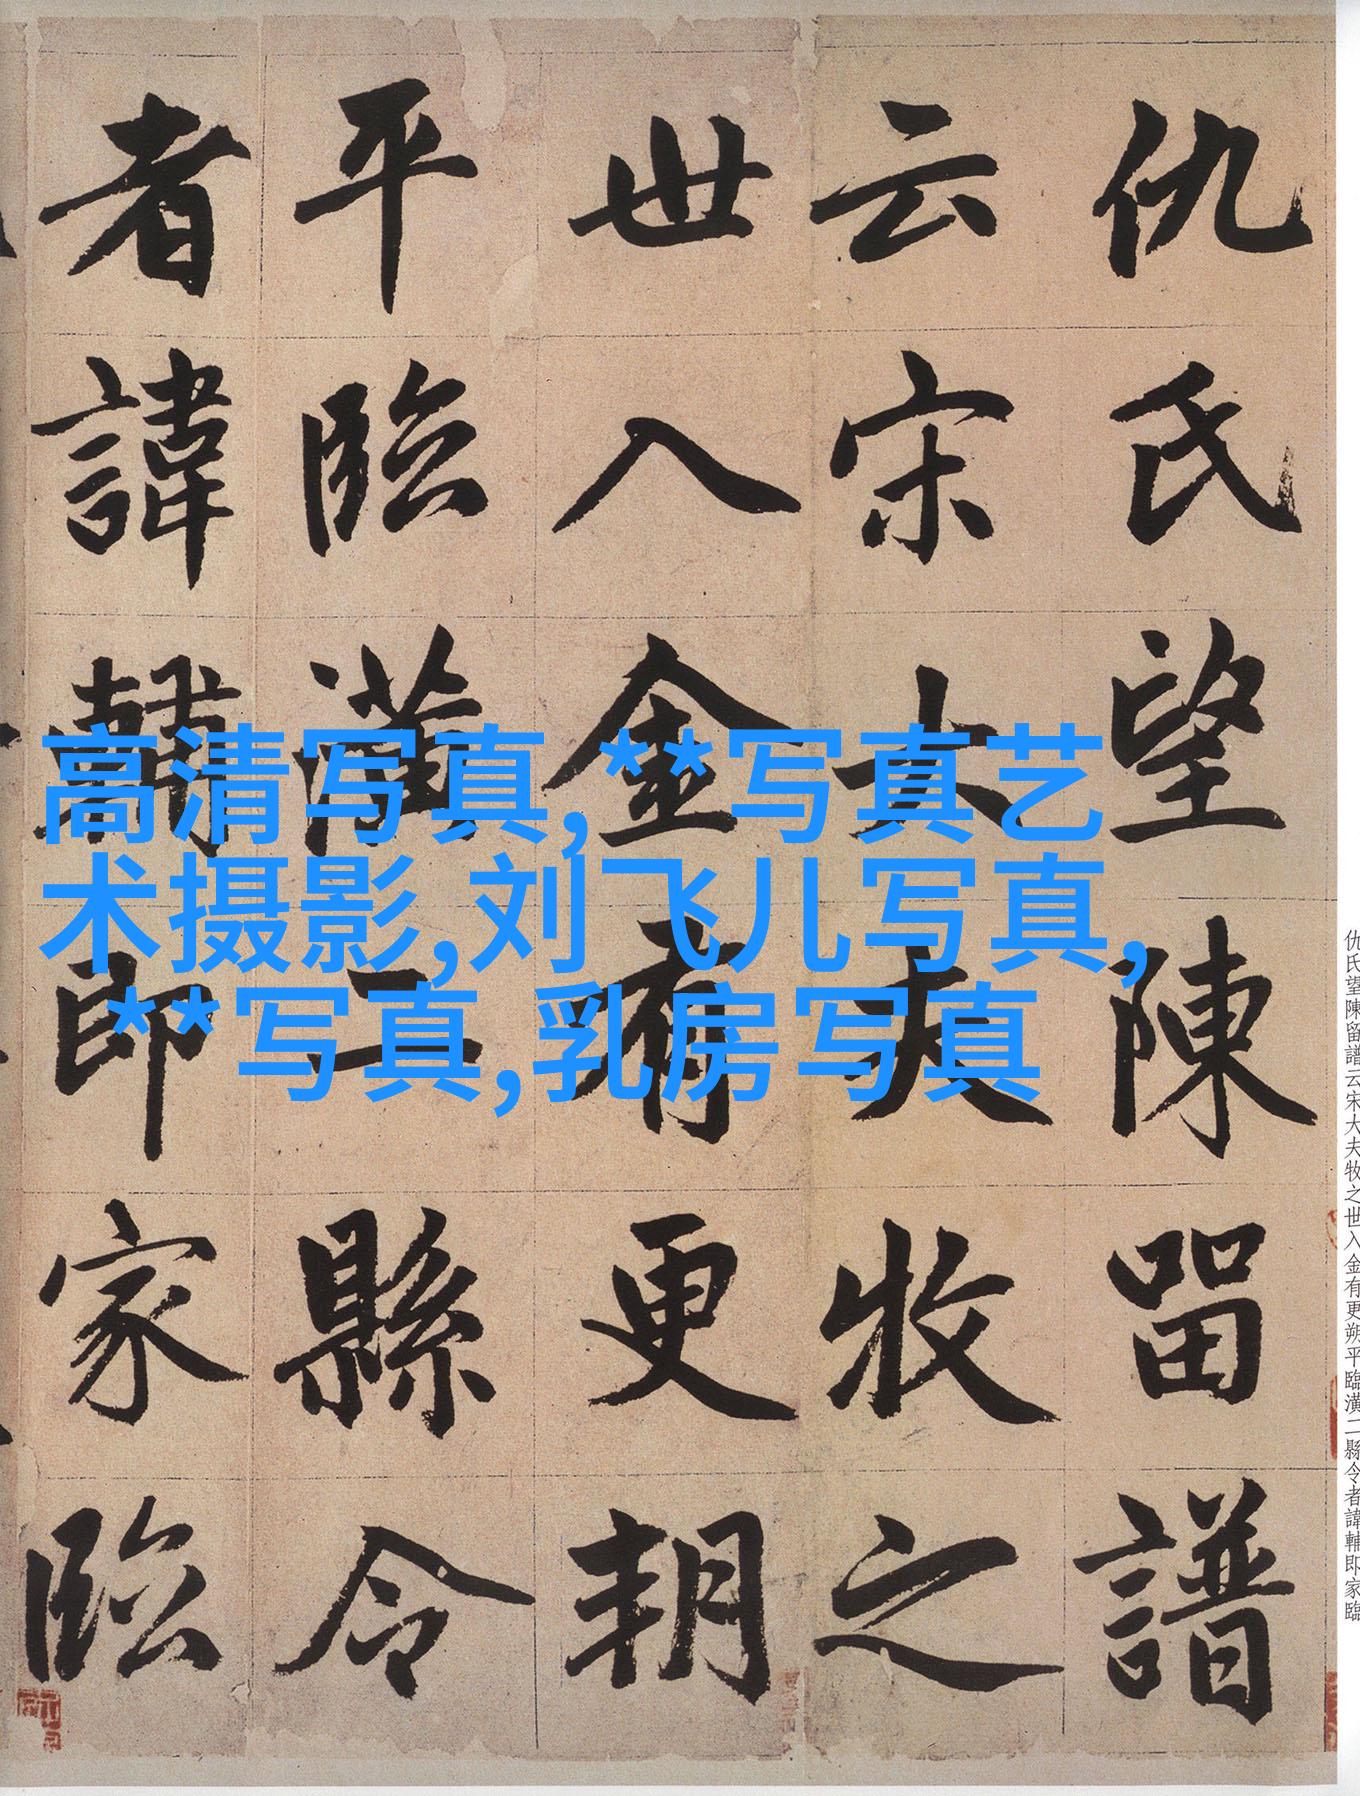 仇氏望陳留譜
云宋大夫牧之
世入金有更朔
平臨潢二縣令
者諱輔即家臨
高清写真, **写真艺
术摄影,刘飞儿写真,
**写真,乳房写真
仇氏望陳留譜云宋大夫牧之世入金有更朔平臨潢二縣令者諱輔即家臨